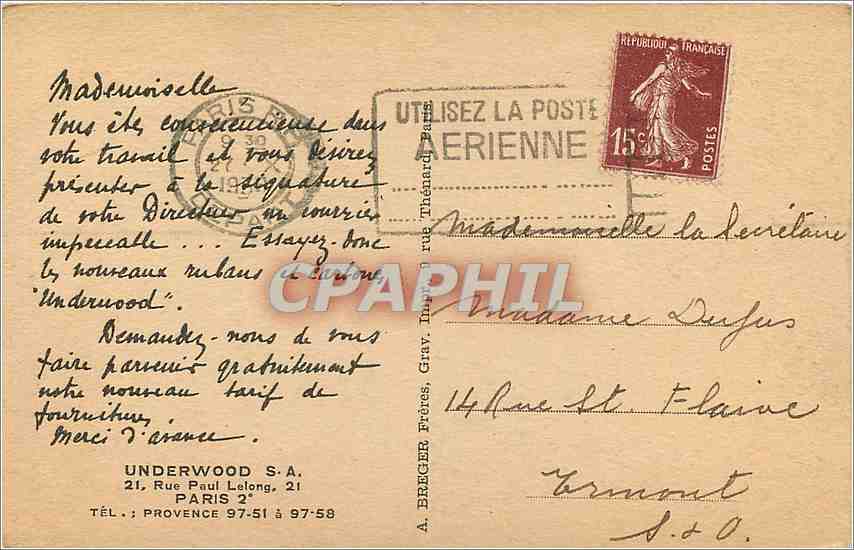 Mademoiselle
Vous êtes consciencieuse dans
votre travail et vous désirez
présenter à la signature
de votre Directeur un courrier
impeccable ... Essayez-donc
les nouveaux rubans et carbones
"Underwood".
Demandez-nous de vous
faire parvenir gratuitement
notre nouveau tarif de
fournitures
Merci d'avance.
UNDERWOOD S.A.
21, Rue Paul Lelong, 21
PARIS 2e
TÉL. : PROVENCE 97-51 à 97-58
A. BREGER Frères, Grav. Impr., 9 rue Thénard, Paris.
PARIS
UTILISEZ LA POSTE
AERIENNE
REPUBLIQUE FRANÇAISE
15c
POSTES
Mademoiselle la Secrétaire
Madame Dufus
14 Rue St. Flaive
Ermont
S. & O.
CPAPHIL